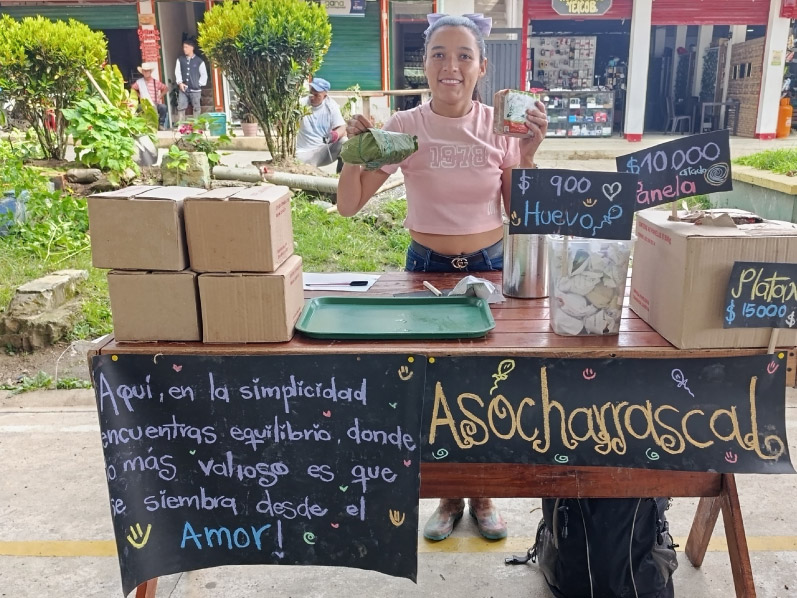 TEJOB
1978
$ 900
Huevo
$10.000
atado
Panela
Platan
$ 15000
Aquí, en la simplicidad
encuentras equilibrio, donde
lo más valioso es que
se siembra desde el
Amor!
Asocharrascal